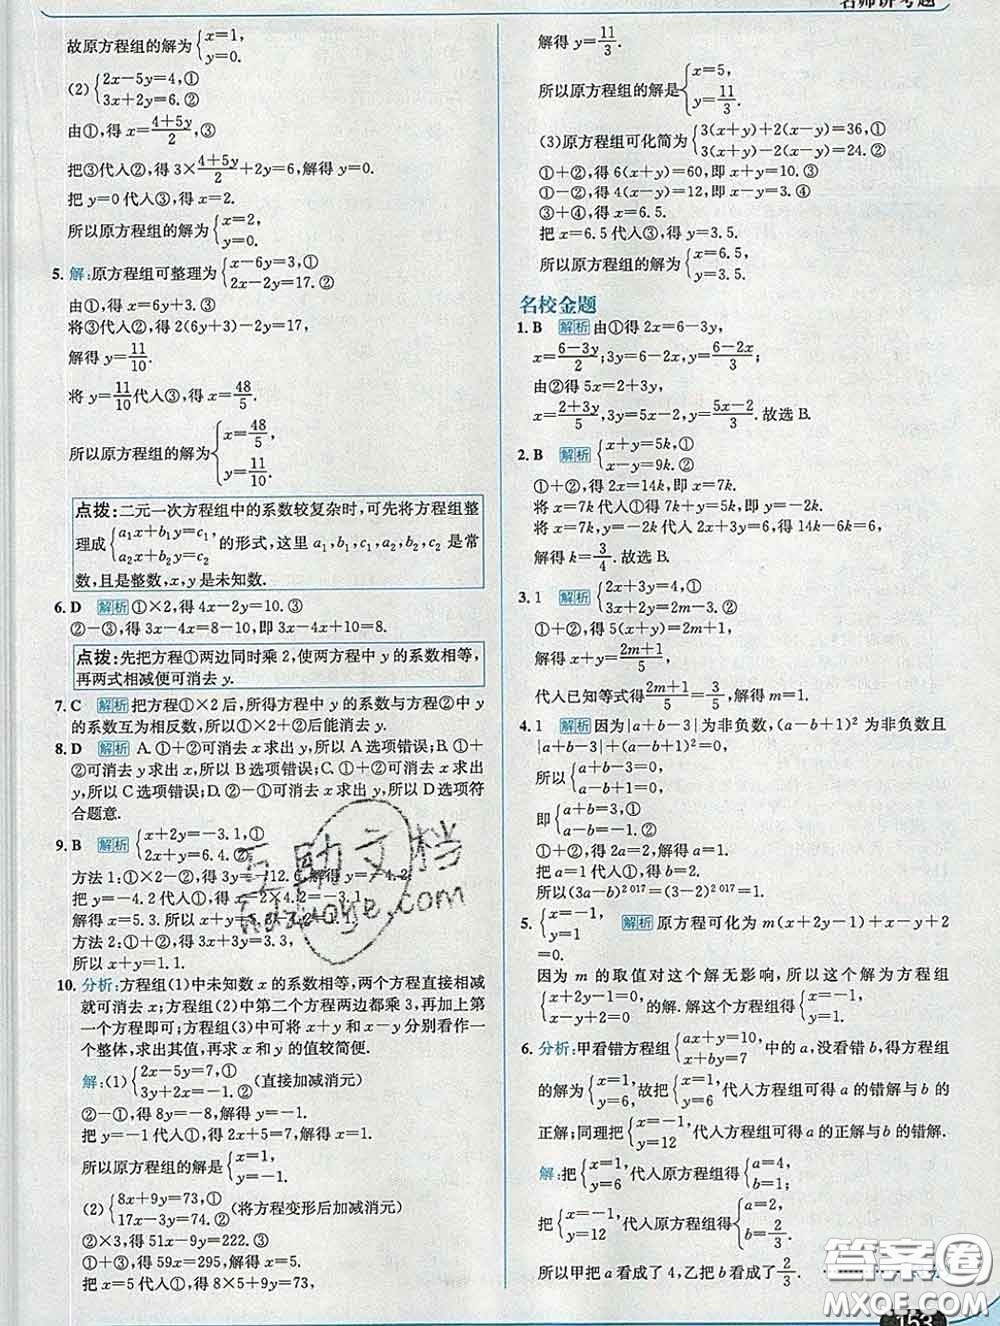 名师讲考题
故原方程组的解为{x=1, y=0.
(2){2x-5y=4,① 3x+2y=6.②
由①,得 x=(4+5y)/2,③
把③代入②,得 3×(4+5y)/2+2y=6,解得 y=0.
把 y=0代入③,得 x=2.
所以原方程组的解为{x=2, y=0.
5. 解:原方程组可整理为{x-6y=3,① 2x-2y=17.②
由①,得 x=6y+3.③
将③代入②,得 2(6y+3)-2y=17,
解得 y=11/10.
将 y=11/10代入③,得 x=48/5.
所以原方程组的解为{x=48/5, y=11/10.
点拨:二元一次方程组中的系数较复杂时,可先将方程组整
理成{a₁x+b₁y=c₁, a₂x+b₂y=c₂ 的形式,这里 a₁,b₁,c₁,a₂,b₂,c₂ 是常
数,且是整数,x,y 是未知数.
6. D 解析 ①×2,得 4x-2y=10.③
②-③,得 3x-4x=8-10,即 3x-4x+10=8.
点拨:先把方程①两边同时乘 2,使两方程中 y 的系数相等,
再两式相减便可消去 y.
7. C 解析 把方程①×2后,所得方程中 y 的系数与方程②中 y
的系数互为相反数,所以①×2+②后能消去 y.
8. D 解析 A.①+②可消去 x 求出 y,所以 A 选项错误;B.①+
②可消去 y 求出 x,所以 B 选项错误;C.①+②可消去 x 求出
y,所以 C 选项错误;D.②-①可消去 x 求出 y,所以 D 选项符
合题意.
9. B 解析 {x+2y=-3.1,① 2x+y=6.4.②
方法 1:①×2-②,得 3y=-12.6,解得 y=-4.2.
把 y=-4.2代入①,得 x+2×
解得 x=5.3.所以 x+y=
方法 2:①+②,得 3x+3y=3.3,
所以 x+y=1.1.
10. 分析:方程组(1)中未知数 x 的系数相等,两个方程直接相减
就可消去 x;方程组(2)中第二个方程两边都乘 3,再加上第
一个方程即可;方程组(3)中可将 x+y 和 x-y 分别看作一
个整体,求出其值,再求 x 和 y 的值较简便.
解:(1){2x-5y=7,① 3y+2x=-1.② (直接加减消元)
②-①,得 8y=-8,解得 y=-1.
把 y=-1代入①,得 2x+5=7,解得 x=1.
所以原方程组的解是{x=1, y=-1.
(2){8x+9y=73,① 17x-3y=74.② (将方程变形后加减消元)
②×3,得 51x-9y=222.③
①+③,得 59x=295,解得 x=5.
把 x=5代入①,得 8×5+9y=73,
解得 y=11/3.
所以原方程组的解是{x=5, y=11/3.
(3)原方程组可化简为{3(x+y)+2(x-y)=36,① 3(x+y)-2(x-y)=24.②
①+②,得 6(x+y)=60,即 x+y=10.③
①-②,得 4(x-y)=12,即 x-y=3.④
③+④,得 x=6.5.
把 x=6.5代入③,得 y=3.5.
所以原方程组的解为{x=6.5, y=3.5.
名校金题
1. B 解析 由①得 2x=6-3y,
x=(6-3y)/2;3y=6-2x,y=(6-2x)/3;
由②得5x=2+3y,
x=(2+3y)/5,3y=5x-2,y=(5x-2)/3.故选 B.
2. B 解析 {x+y=5k,① x-y=9k.②
①+②,得 2x=14k,即 x=7k.
将 x=7k代入①得 7k+y=5k,即 y=-2k.
将 x=7k,y=-2k 代入 2x+3y=6,得 14k-6k=6,
解得 k=3/4.故选 B.
3. 1 解析 {2x+3y=4,① 3x+2y=2m-3.②
①+②,得 5(x+y)=2m+1,
解得 x+y=(2m+1)/5,
代入已知等式得(2m+1)/5=3/5,解得 m=1.
4. 1 解析 因为|a+b-3|为非负数,(a-b+1)² 为非负数且
|a+b-3|+(a-b+1)²=0,
所以{a+b-3=0, a-b+1=0.
即{a+b=3,① a-b=-1.②
①+②,得 2a=2,解得 a=1.
把 a=1代入①,得 b=2.
所以(3a-b)²⁰¹⁷=(3-2)²⁰¹⁷=1.
5. {x=-1, y=1 解析 原方程可化为 m(x+2y-1)+x-y+2
=0.
因为 m 的取值对这个解无影响,所以这个解为方程组
{x+2y-1=0, x-y+2=0 的解.解这个方程组得{x=-1, y=1.
6. 分析:甲看错方程组{ax+y=10, x+by=7 中的 a,没看错 b,得方程组
的解为{x=1, y=6,故把{x=1, y=6 代入方程组可得 a 的错解与 b 的
正解;同理把{x=-1, y=12 代入方程组可得 a 的正解与 b 的错解.
解:把{x=1, y=6 代入原方程组得{a=4, b=1.
把{x=-1, y=12 代入原方程组得{a=2, b=2/3.
所以甲把 a 看成了 4,乙把 b 看成了 2/3.
互助文档
hdzuoye.com
答案圈
MXQE.COM
153